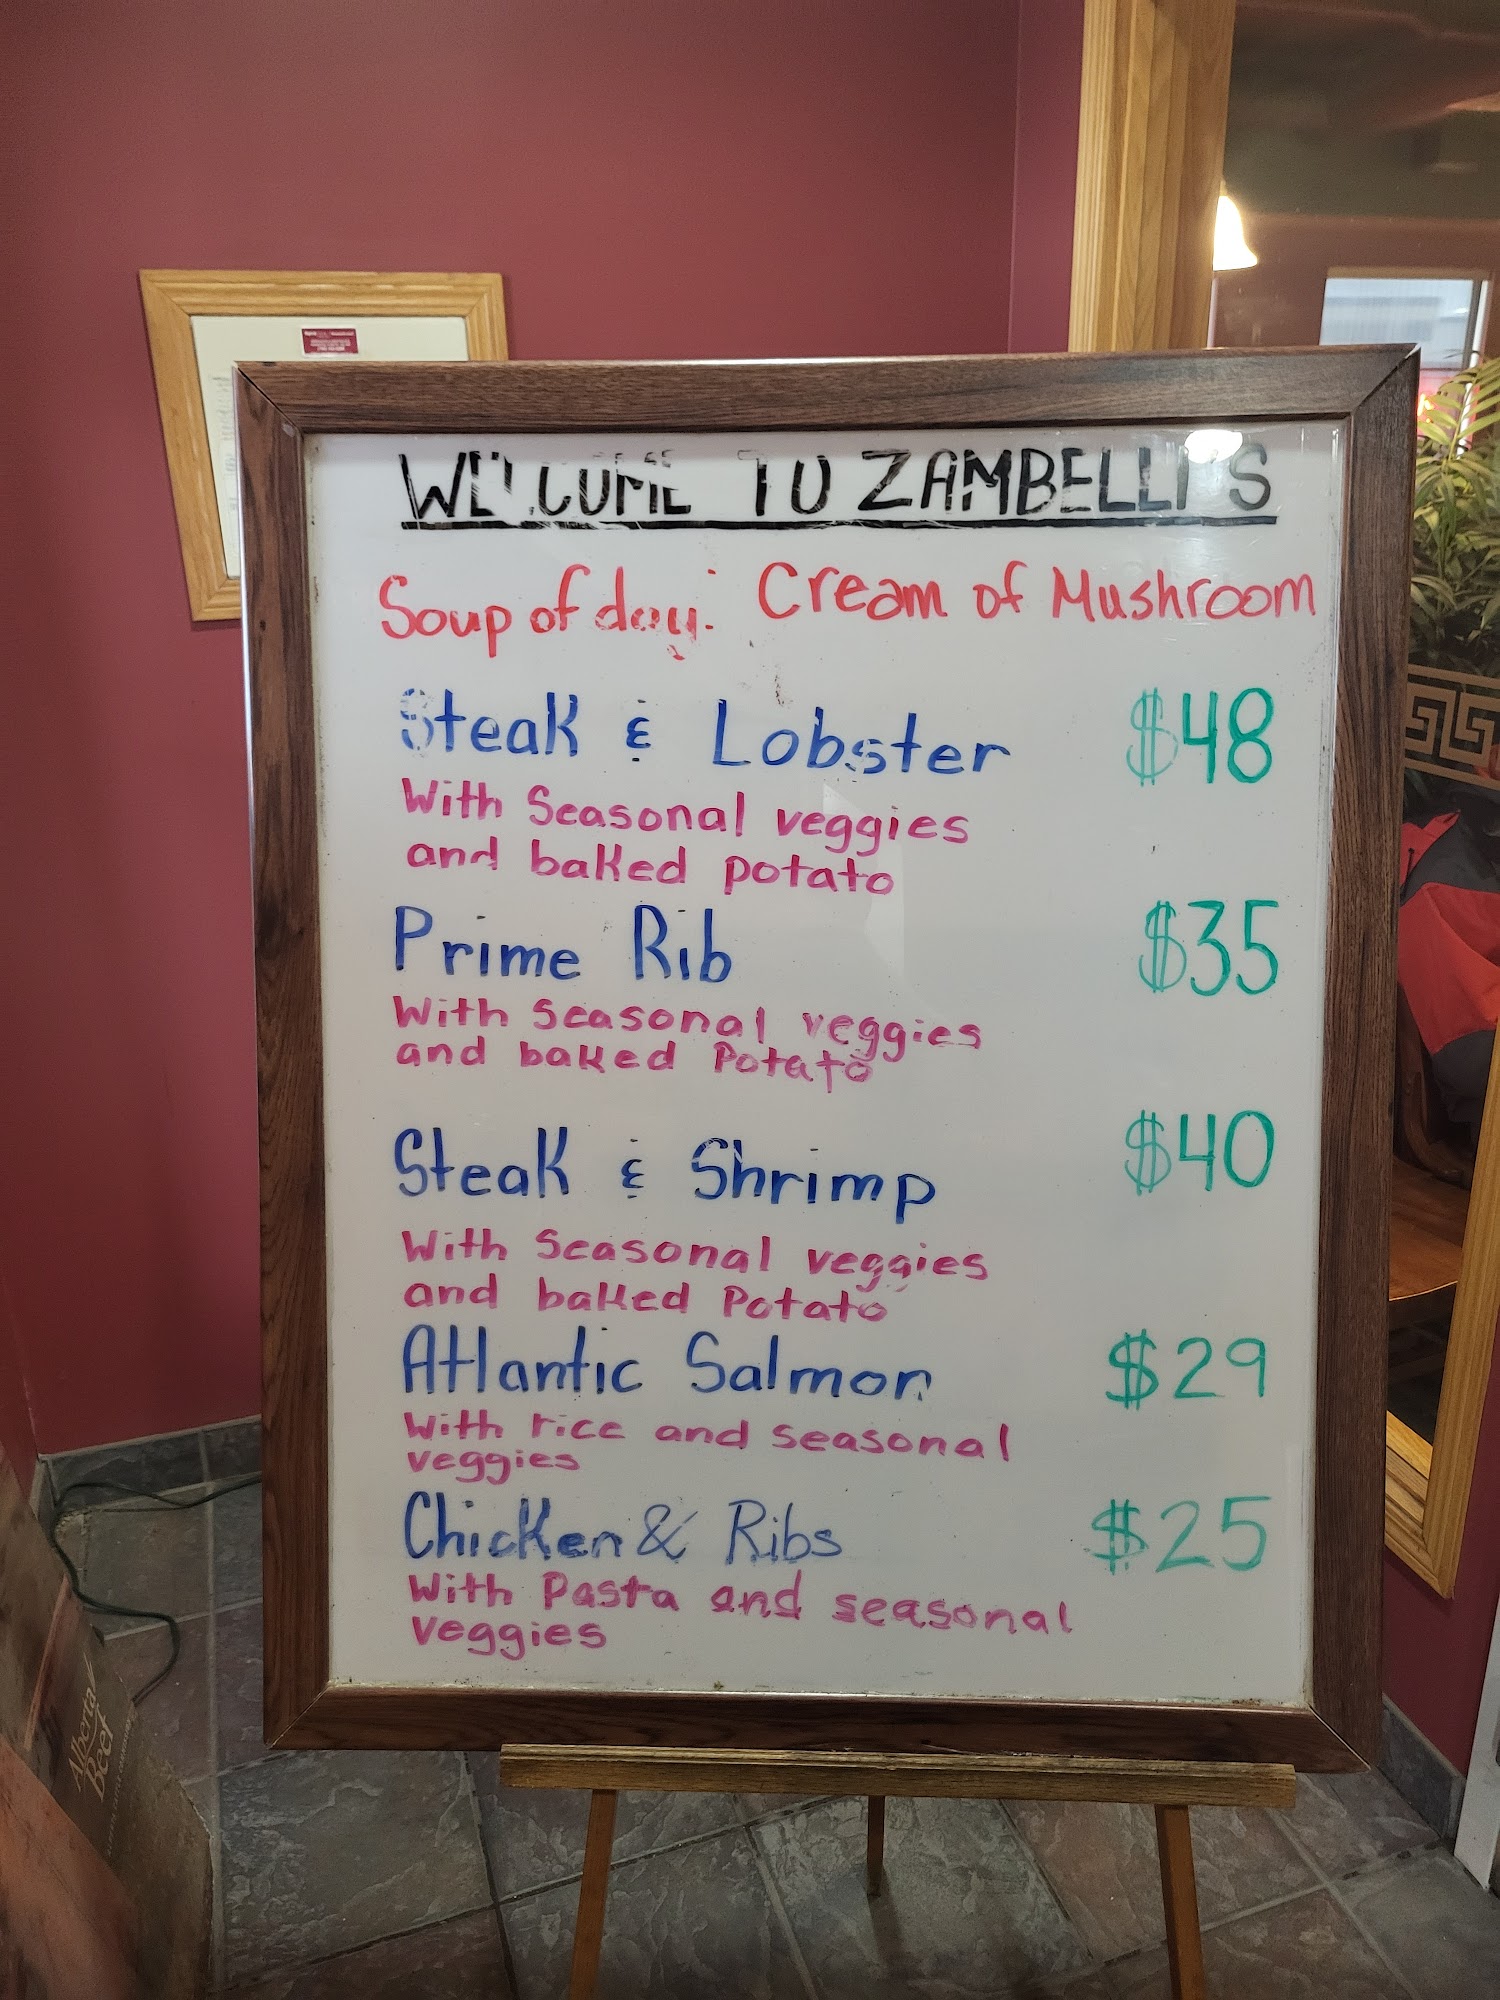 WELCOME TO ZAMBELLI'S
Soup of day: Cream of Mushroom
Steak & Lobster $48
With Seasonal veggies
and baked potato
Prime Rib $35
With Seasonal veggies
and baked Potato
Steak & Shrimp $40
With Seasonal veggies
and baked Potato
Atlantic Salmon $29
With rice and seasonal
veggies
Chicken & Ribs $25
With Pasta and seasonal
veggies
Alberta
Beef